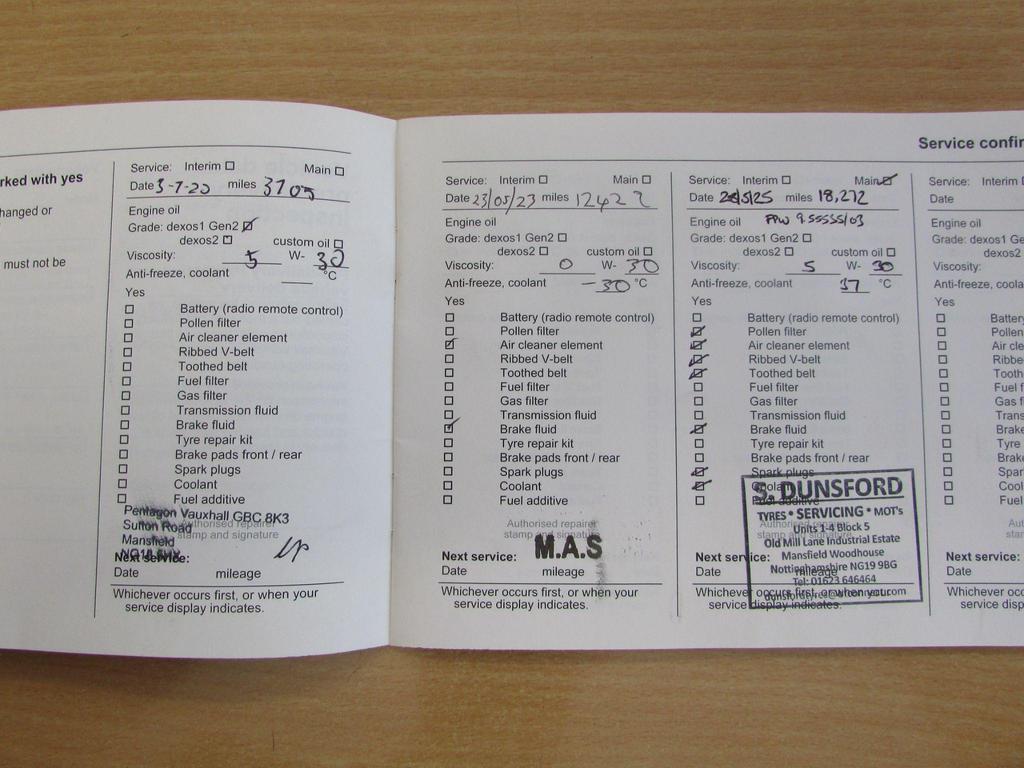 rked with yes
hanged or
must not be
Service: Interim ☐ Main ☐
Date 3-7-20 miles 3705
Engine oil
Grade: dexos1 Gen2 ☑
dexos2 ☐ custom oil ☐
Viscosity: 5 W- 30
Anti-freeze, coolant °C
Yes
☐ Battery (radio remote control)
☐ Pollen filter
☐ Air cleaner element
☐ Ribbed V-belt
☐ Toothed belt
☐ Fuel filter
☐ Gas filter
☐ Transmission fluid
☐ Brake fluid
☐ Tyre repair kit
☐ Brake pads front / rear
☐ Spark plugs
☐ Coolant
☐ Fuel additive
Pentagon Vauxhall GBC 8K3
Sutton Road
Mansfield
Authorised repairer
stamp and signature
Next service:
Date mileage
Whichever occurs first, or when your
service display indicates.
Service: Interim ☐ Main ☐
Date 23/05/23 miles 12422
Engine oil
Grade: dexos1 Gen2 ☐
dexos2 ☐ custom oil ☐
Viscosity: 0 W- 30
Anti-freeze, coolant -30 °C
Yes
☐ Battery (radio remote control)
☐ Pollen filter
☑ Air cleaner element
☐ Ribbed V-belt
☐ Toothed belt
☐ Fuel filter
☐ Gas filter
☐ Transmission fluid
☑ Brake fluid
☐ Tyre repair kit
☐ Brake pads front / rear
☐ Spark plugs
☐ Coolant
☐ Fuel additive
Authorised repairer
stamp and signature
M.A.S
Next service:
Date mileage
Whichever occurs first, or when your
service display indicates.
Service confir
Service: Interim ☐ Main ☑
Date miles 18,272
Engine oil
Grade: dexos1 Gen2 ☐
dexos2 ☐ custom oil ☐
Viscosity: 5 W- 30
Anti-freeze, coolant 37 °C
Yes
☐ Battery (radio remote control)
☑ Pollen filter
☑ Air cleaner element
☑ Ribbed V-belt
☑ Toothed belt
☐ Fuel filter
☐ Gas filter
☐ Transmission fluid
☑ Brake fluid
☐ Tyre repair kit
☐ Brake pads front / rear
☑ Spark plugs
☑ Coolant
☐ Fuel additive
S. DUNSFORD
TYRES • SERVICING • MOT's
Units 1-4 Block 5
Old Mill Lane Industrial Estate
Mansfield Woodhouse
Nottinghamshire NG19 9BG
Tel: 01623 646464
Next service:
Date mileage
Whichever occurs first, or when your
service display indicates.
Service: Interim
Date
Engine oil
Grade: dexos1 G
dexos2
Viscosity:
Anti-freeze, coola
Yes
☐ Batter
☐ Pollen
☐ Air cle
☐ Ribbe
☐ Tooth
☐ Fuel f
☐ Gas f
☐ Trans
☐ Brake
☐ Tyre
☐ Brake
☐ Spark
☐ Cool
☐ Fuel
Next service:
Date
Whichever occ
service disp